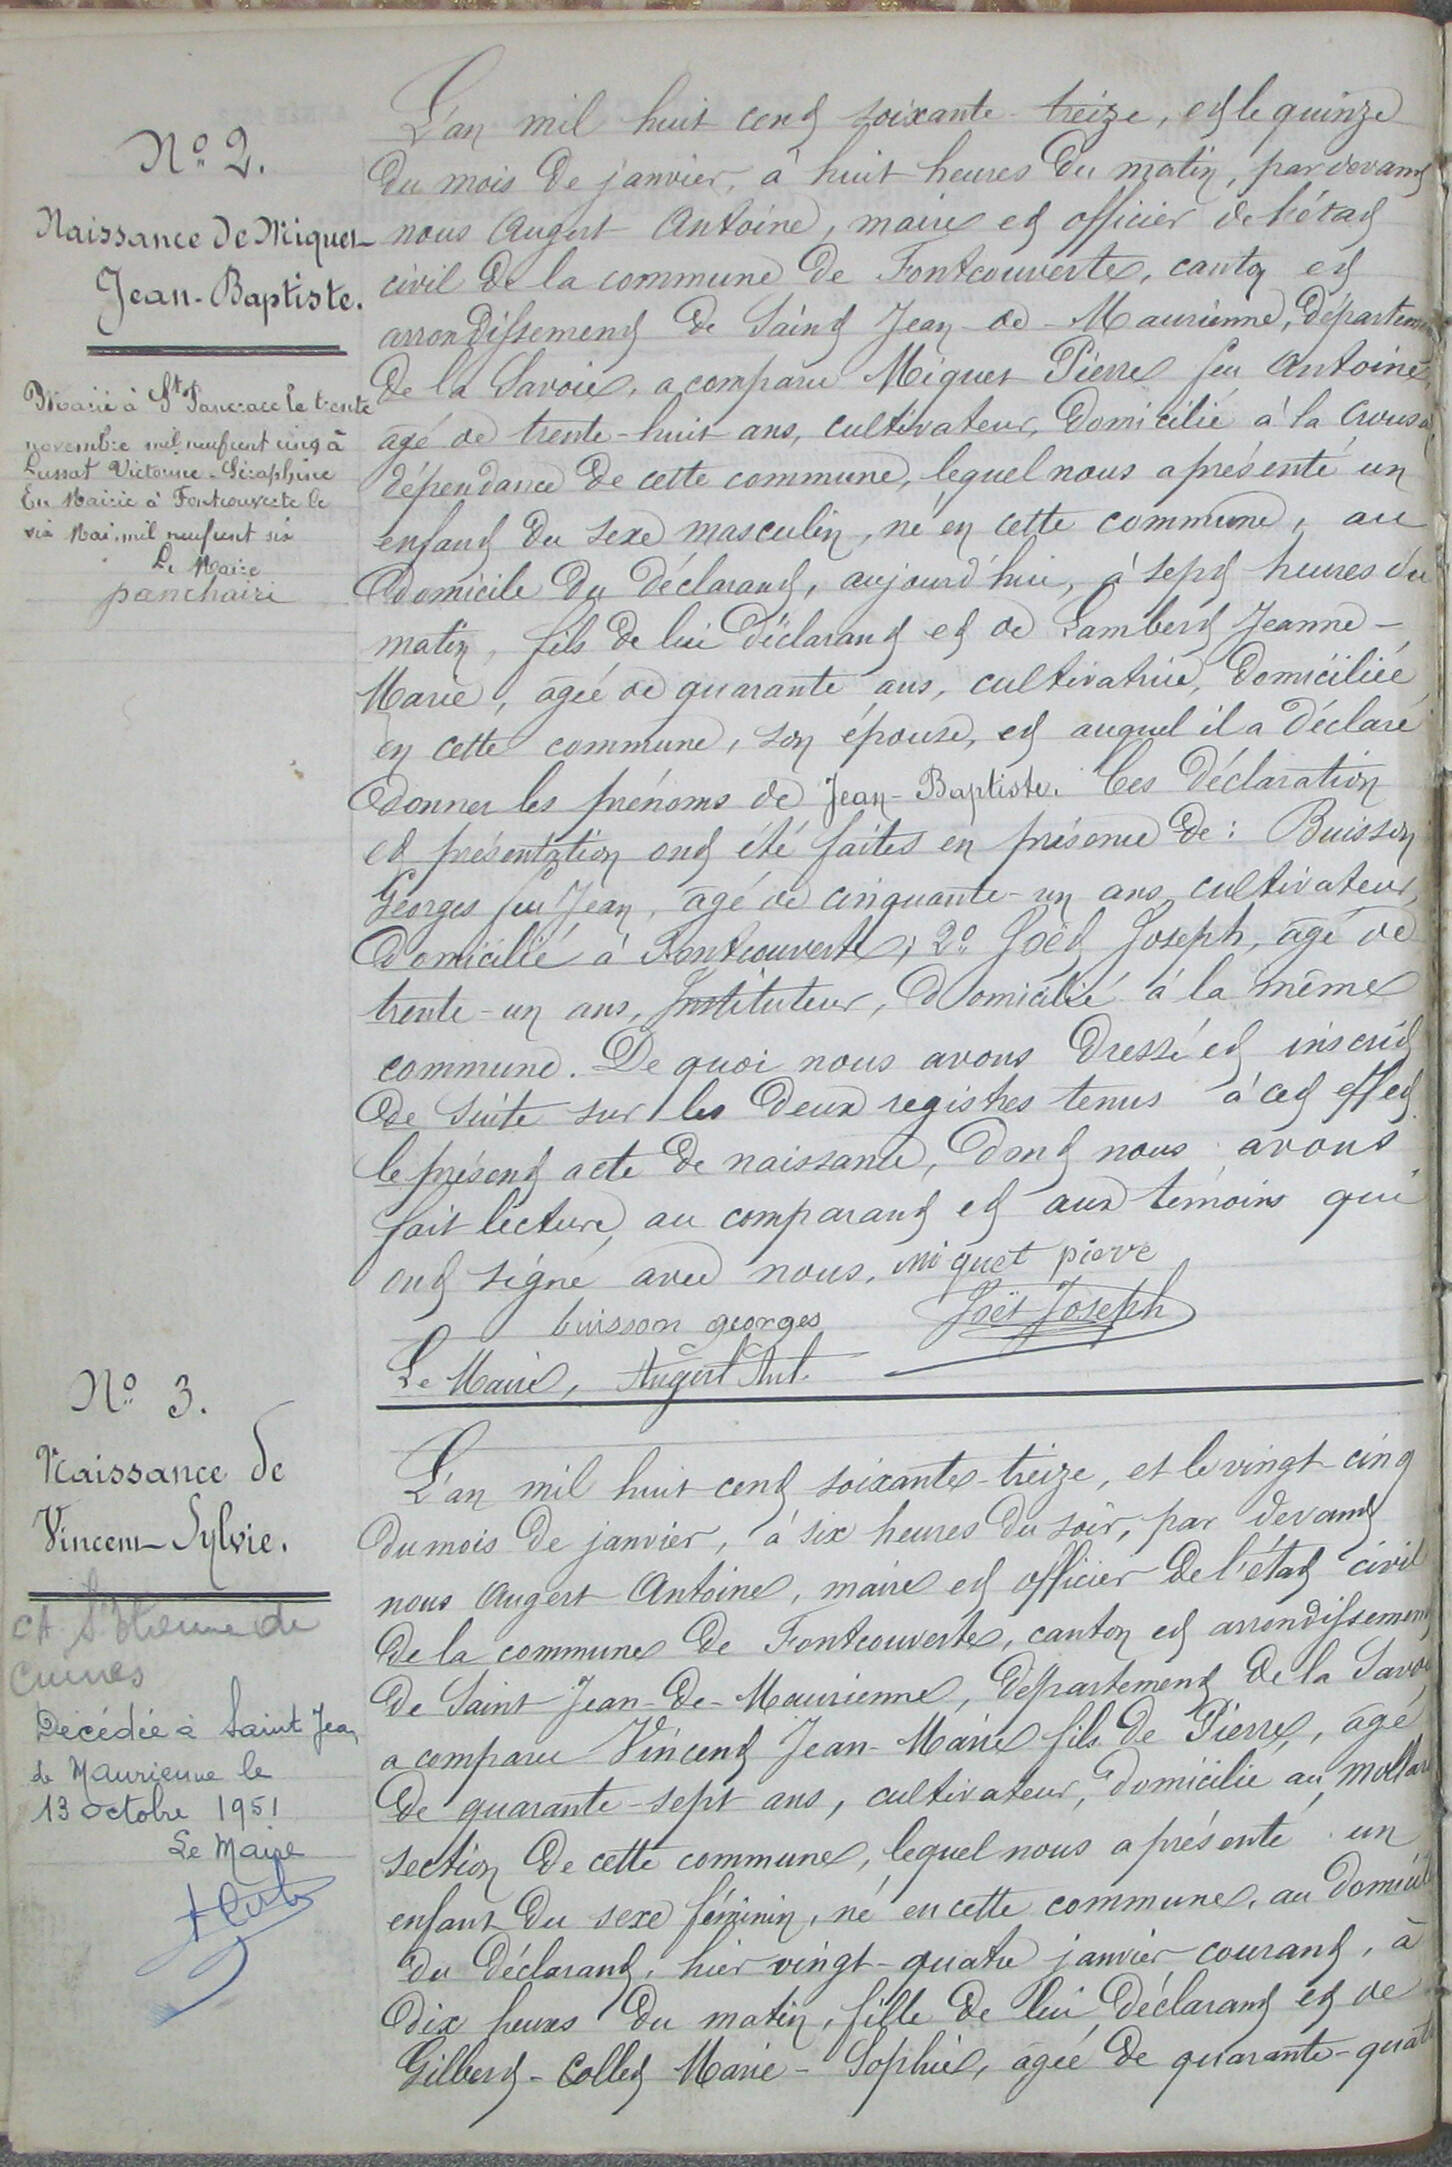 N° 2.
Naissance de Miquet
Jean-Baptiste.
Marié à St Pancrace le trente
novembre mil neuf cent cinq à
Victorine-Séraphine
En Mairie à Fontcouverte le
six Mai mil neuf cent six
Le Maire
L'an mil huit cent soixante-treize, et le quinze
du mois de janvier, à huit heures du matin, par devant
nous Augert Antoine, maire et officier de l'état
civil de la commune de Fontcouverte, canton et
arrondissement de Saint Jean-de-Maurienne, département
de la Savoie, a comparu Miquet Pierre feu Antoine,
agé de trente-huit ans, cultivateur, domicilié à la
dépendance de cette commune, lequel nous a présenté un
enfant du sexe masculin, né en cette commune, au
domicile du déclarant, aujourd'hui, à sept heures du
matin, fils de lui déclarant et de Lambert Jeanne-
Marie, agée de quarante ans, cultivatrice, domiciliée
en cette commune, son épouse, et auquel il a déclaré
donner les prénoms de Jean-Baptiste. Ces déclaration
et présentation ont été faites en présence de : Buisson
Georges feu Jean, agé de cinquante-un ans, cultivateur,
domicilié à Fontcouverte, 2° Joët Joseph, agé de
trente-un ans, Instituteur, domicilié à la même
commune. De quoi nous avons dressé et inscrit
de suite sur les deux registres tenus à cet effet
le présent acte de naissance, dont nous avons
fait lecture au comparant et aux témoins qui
ont signé avec nous. miquet pierre
buisson georges Joët Joseph
Le Maire, Augert Ant.
N° 3.
Naissance de
Vincent Sylvie.
St Etienne de
Cuines
Décédée à Saint Jean
de Maurienne le
13 octobre 1951
Le Maire
L'an mil huit cent soixante-treize, et le vingt-cinq
du mois de janvier, à six heures du soir, par devant
nous Augert Antoine, maire et officier de l'état civil
de la commune de Fontcouverte, canton et arrondissement
de Saint Jean-de-Maurienne, département de la Savoie
a comparu Vincent Jean-Marie fils de Pierre, agé
de quarante-sept ans, cultivateur, domicilié au Mollard
section de cette commune, lequel nous a présenté un
enfant du sexe féminin, né en cette commune, au domicile
du déclarant, hier vingt-quatre janvier courant, à
dix heures du matin, fille de lui déclarant et de
Gilbert-Collet Marie-Sophie, agée de quarante-quatre